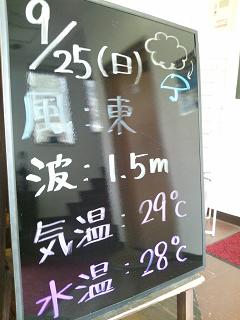 9/25(日)
風:東
波:1.5m
気温:29℃
水温:28℃